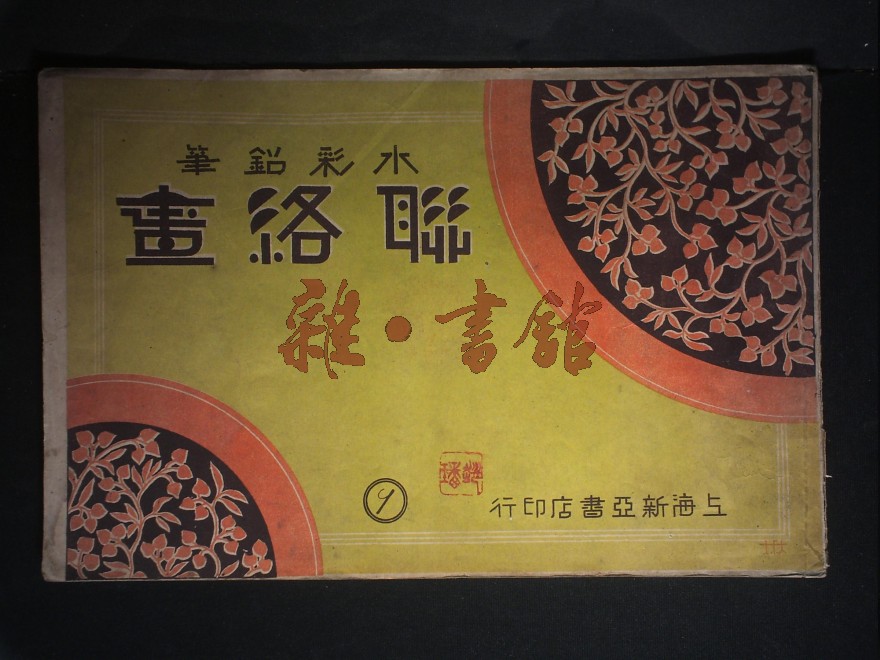 水彩鉛筆
聯絡畫
雜·書館
9
上海新亞書店印行